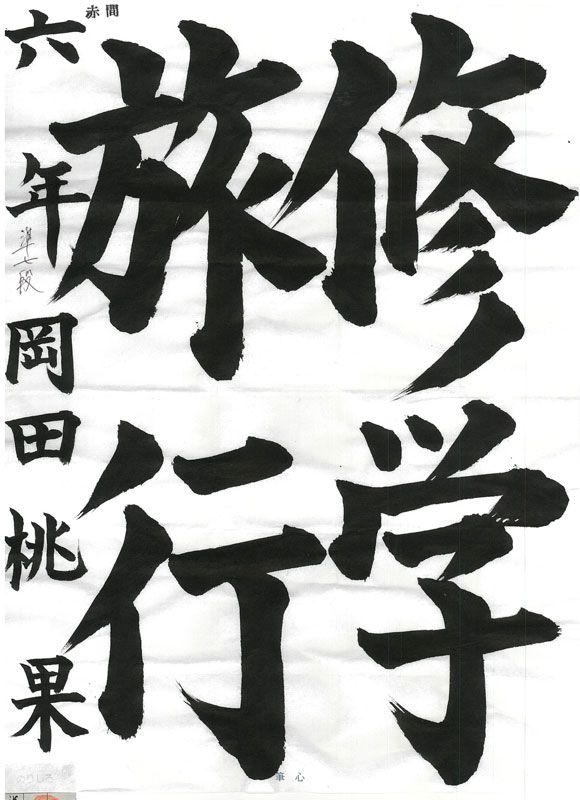 修学
旅行
六年 岡田桃果
準七段
赤間
筆心